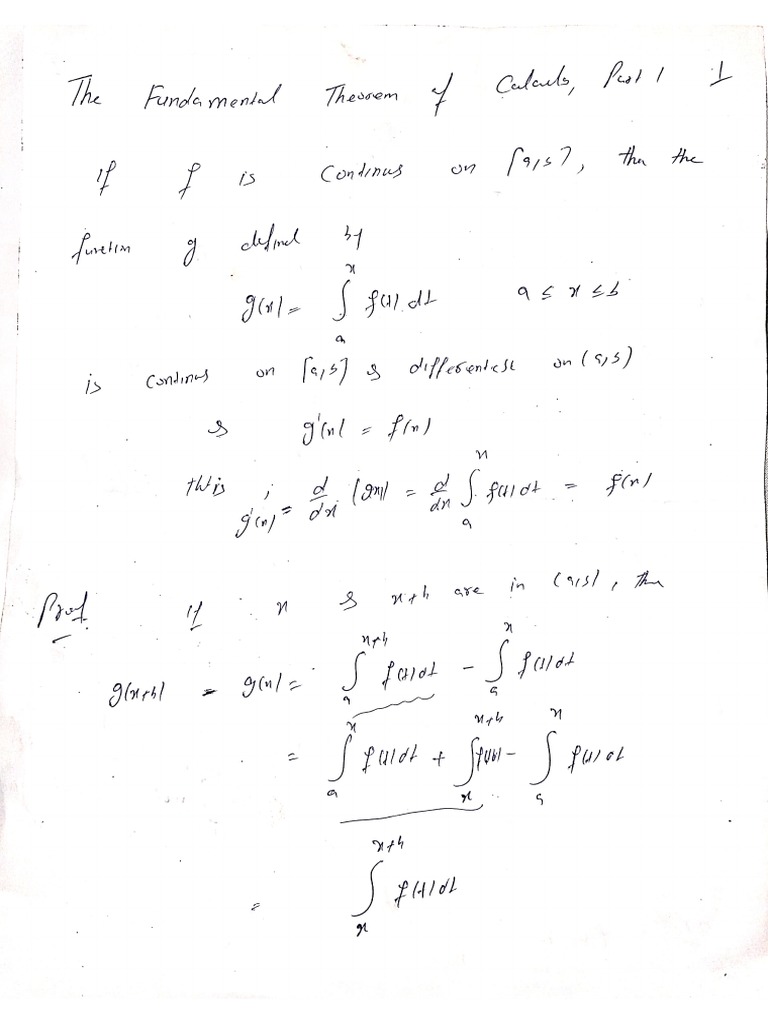 The Fundamental Theorem of Calculs, Part 1 1
If f is Continus on [a,b], then the
function g defined by
g(x) = ∫_a^x f(t) dt a ≤ x ≤ b
is Continus on [a,b] & differentiable on (a,b)
& g'(x) = f(x)
this ; g'(x) = d/dx (g(x)) = d/dx ∫_a^x f(t) dt = f(x)
Proof. If x & x+h are in (a,b), then
g(x+h) - g(x) = ∫_a^{x+h} f(t) dt - ∫_a^x f(t) dt
= ∫_a^x f(t) dt + ∫_x^{x+h} f(t) - ∫_a^x f(t) dt
= ∫_x^{x+h} f(t) dt